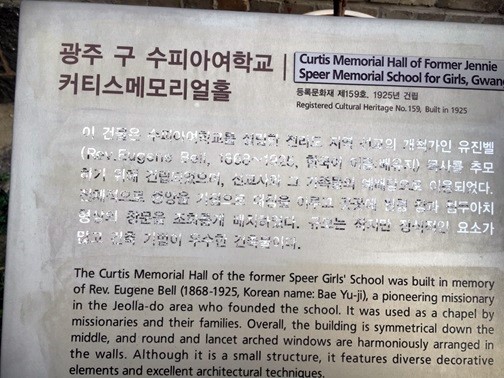 광주 구 수피아여학교
커티스메모리얼홀
Curtis Memorial Hall of Former Jennie
Speer Memorial School for Girls, Gwan
등록문화재 제159호, 1925년 건립
Registered Cultural Heritage No.159, Built in 1925
이 건물은 수피아여학교를 설립한 전라도 지역 선교의 개척가인 유진벨
(Rev.Eugene Bell, 1868~1925, 한국어 이름:배유지) 목사를 추모
하기 위해 건립되었으며, 선교사와 그 가족들의 예배당으로 이용되었다.
전체적으로 중앙을 기점으로 대칭을 이루고
창문을 조화롭게 배치하였다. 규모는 작지만 요소가
많고 건축 기법이 우수한 건축물이다.
The Curtis Memorial Hall of the former Speer Girls' School was built in memory
of Rev. Eugene Bell (1868-1925, Korean name: Bae Yu-ji), a pioneering missionary
in the Jeolla-do area who founded the school. It was used as a chapel by
missionaries and their families. Overall, the building is symmetrical down the
middle, and round and lancet arched windows are harmoniously arranged in
the walls. Although it is a small structure, it features diverse decorative
elements and excellent architectural techniques.